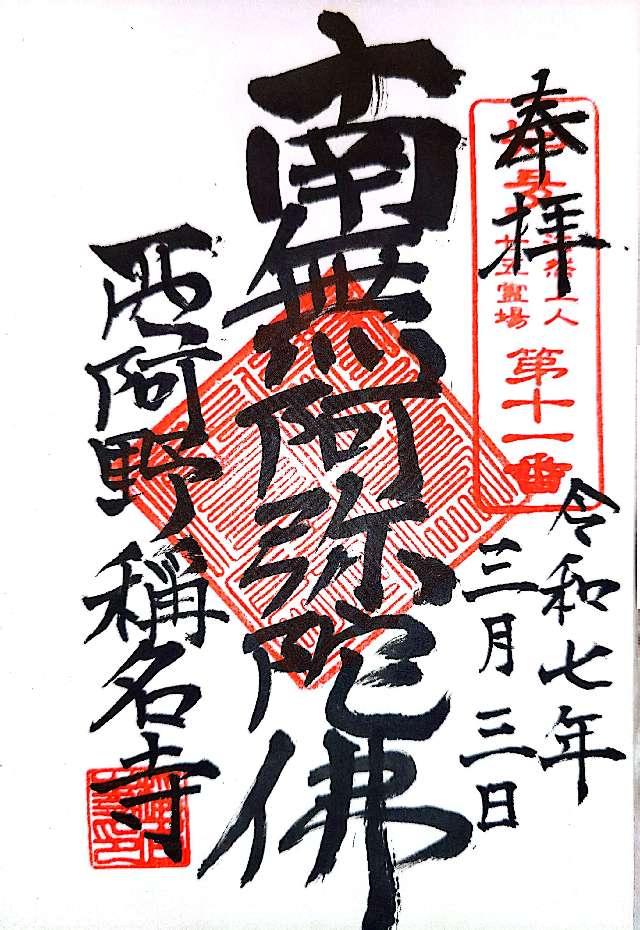 奉拝
知多
法然上人
廿五霊場
第十一番
令和七年
三月三日
南無阿弥陀佛
西阿野 稱名寺